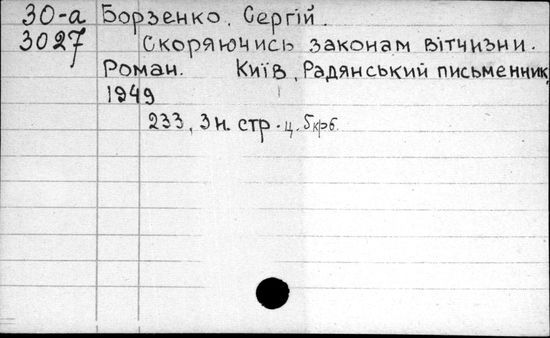 30-а Борзенко, Сергій.
3027 Скоряючись законам вітчизни.
Роман. Київ, Радянський письменник,
1949
233, 3 н. стр. ц. 5 крб.